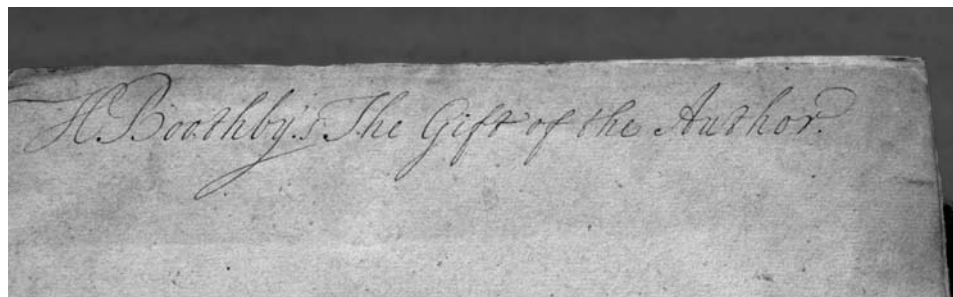 H Boothby's The Gift of the Author.